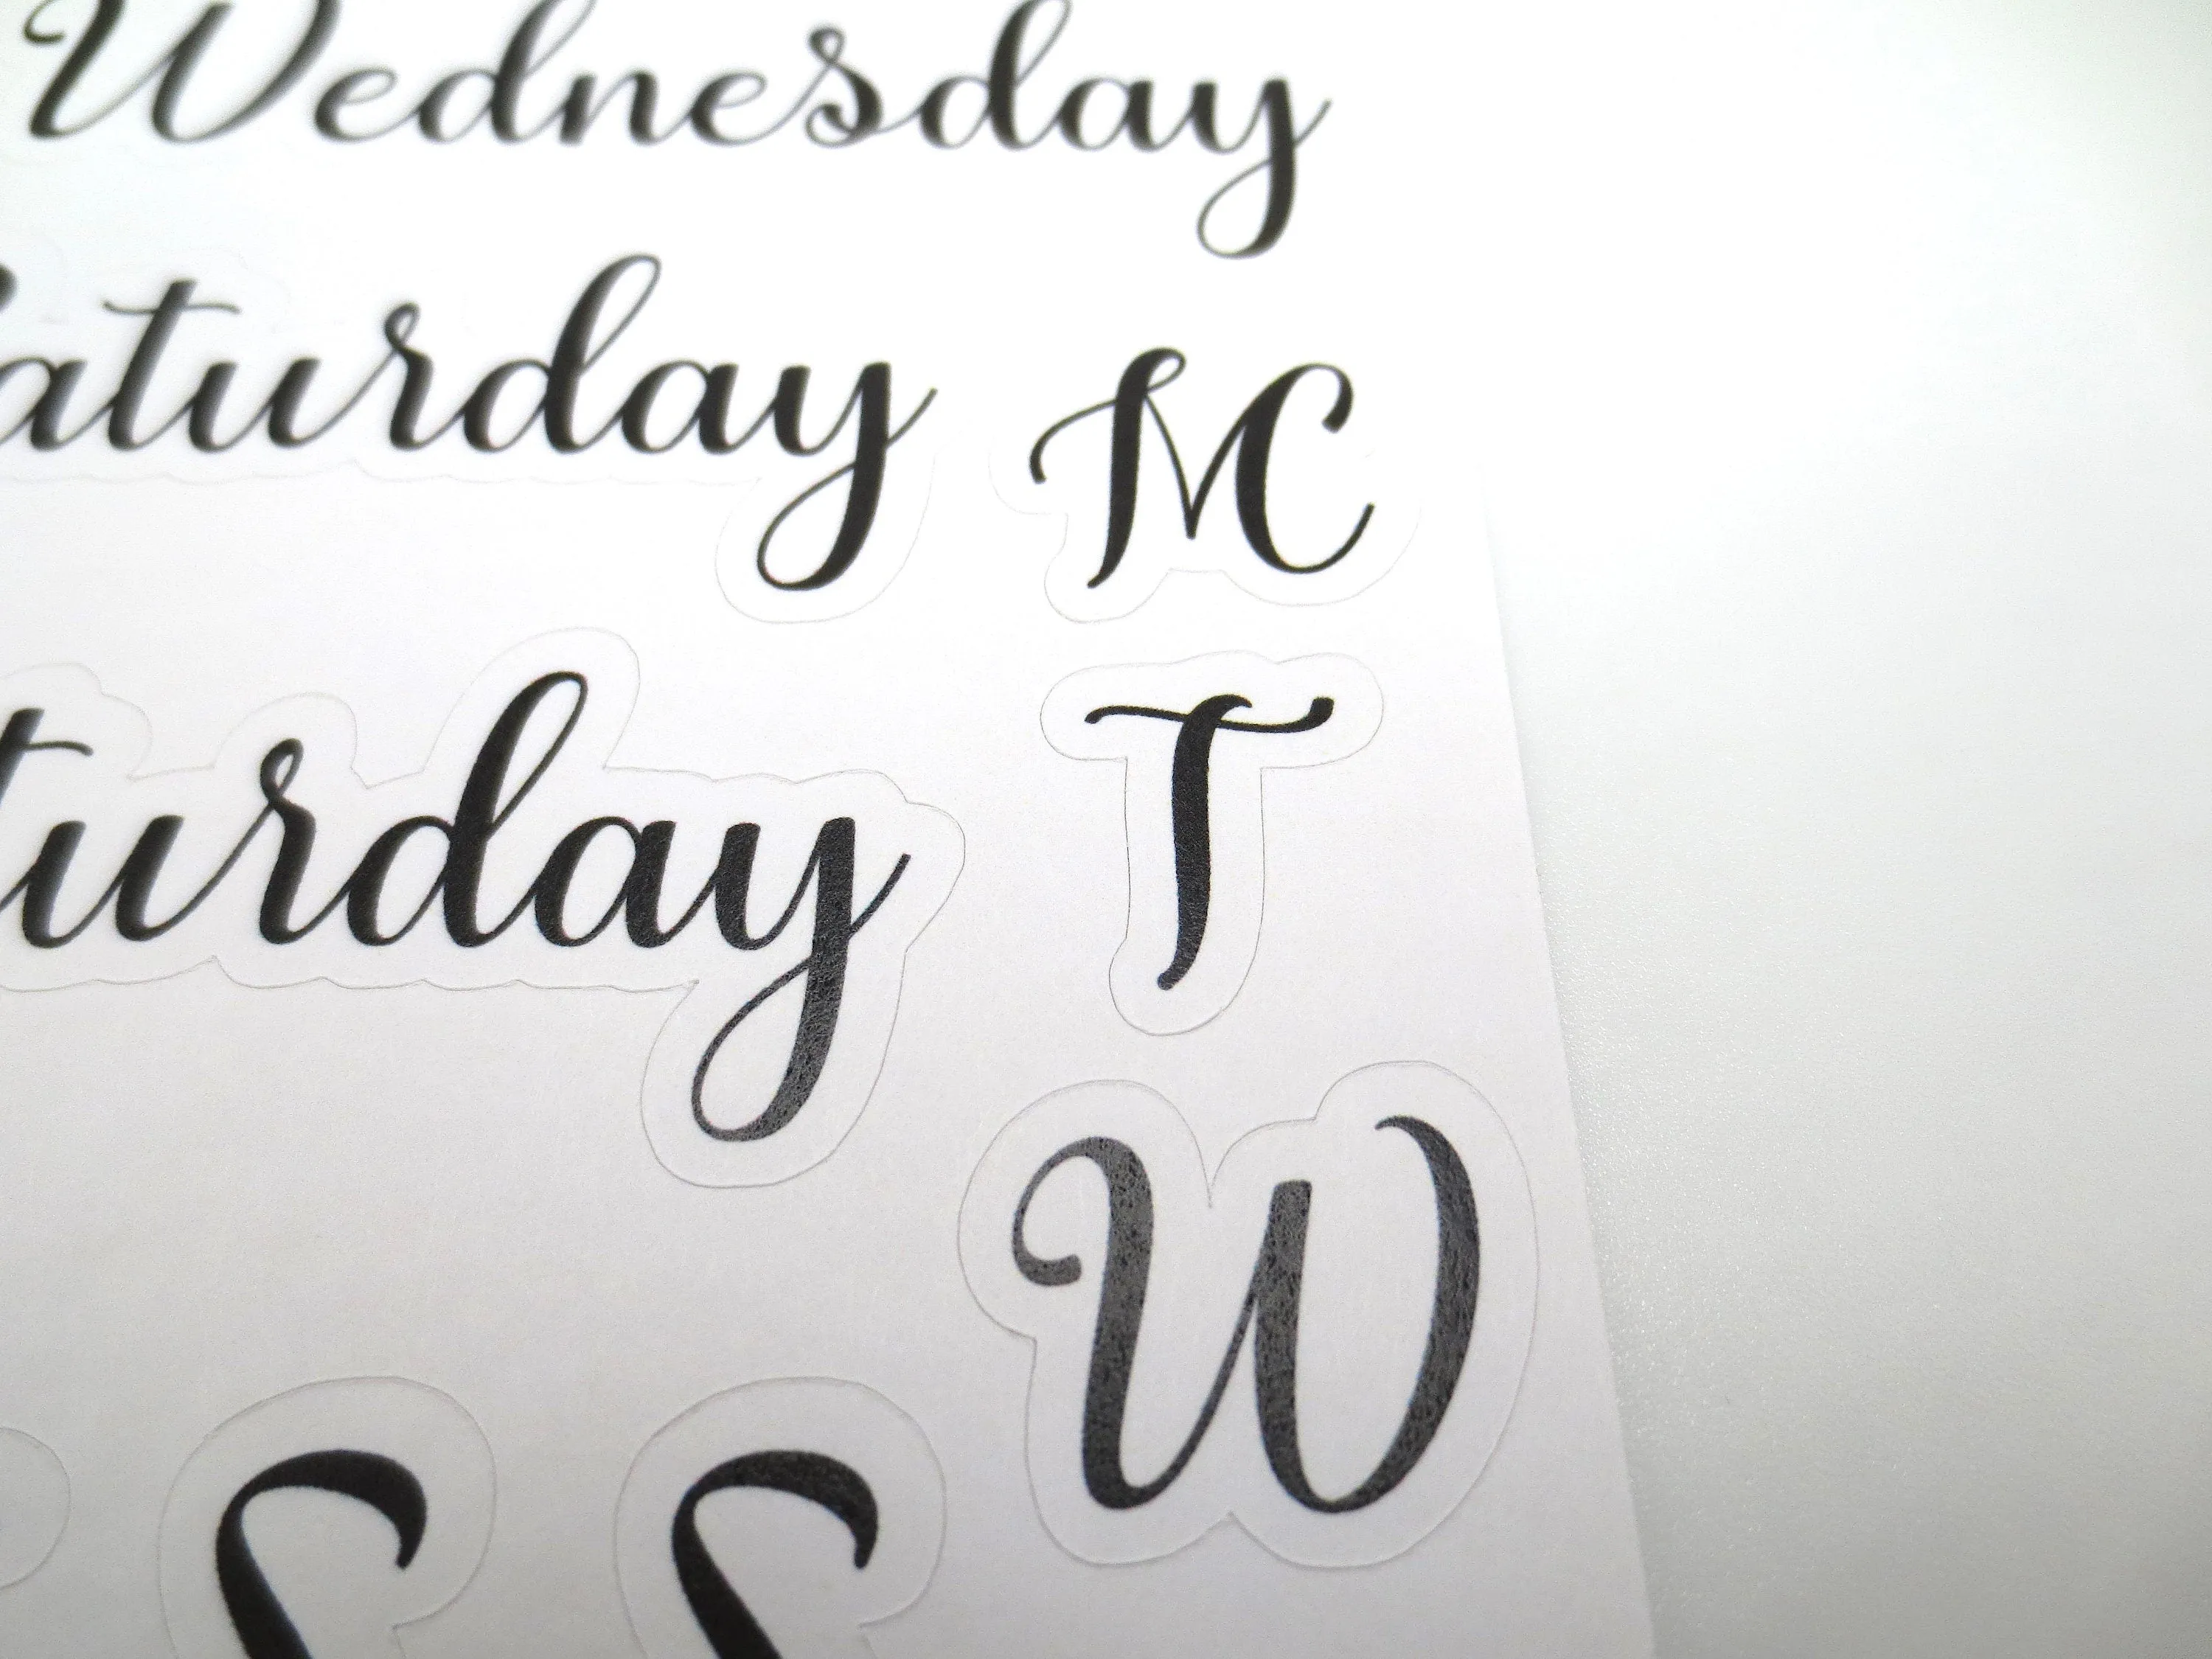 Wednesday
aturday M
turday T
W
S S